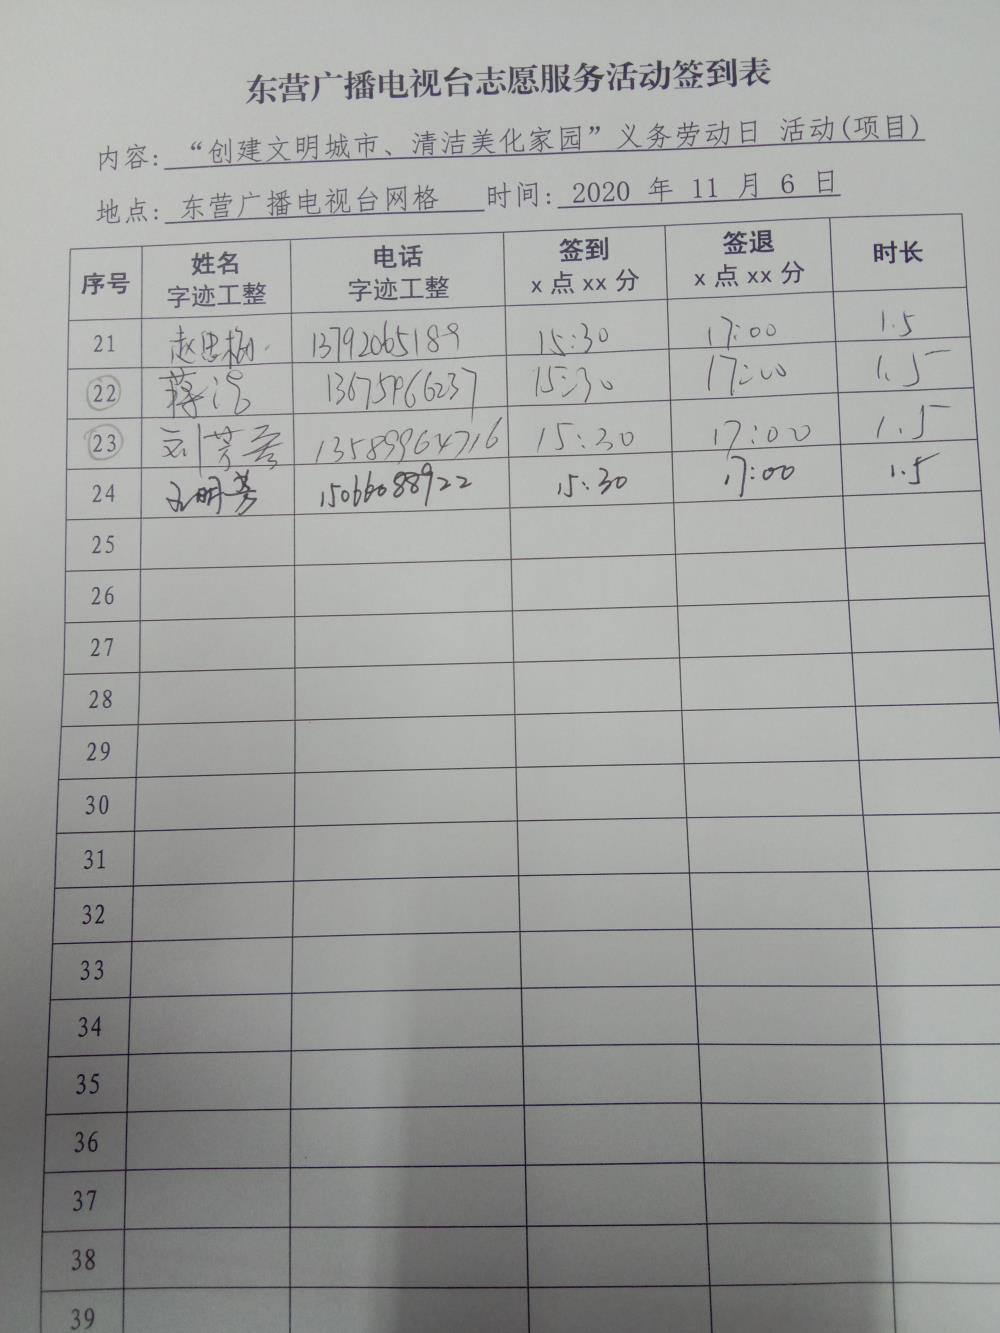 东营广播电视台志愿服务活动签到表
内容: “创建文明城市、清洁美化家园”义务劳动日 活动(项目)
地点: 东营广播电视台网格 时间: 2020 年 11 月 6 日
序号 姓名 字迹工整 电话 字迹工整 签到 x 点 xx 分 签退 x 点 xx 分 时长
21 赵 13792065189 15:30 17:00 1.5
22 蒋 13675966237 15:30 17:00 1.5
23 刘芳 13589964716 15:30 17:00 1.5
24 明芳 15066088922 15:30 17:00 1.5
25
26
27
28
29
30
31
32
33
34
35
36
37
38
39